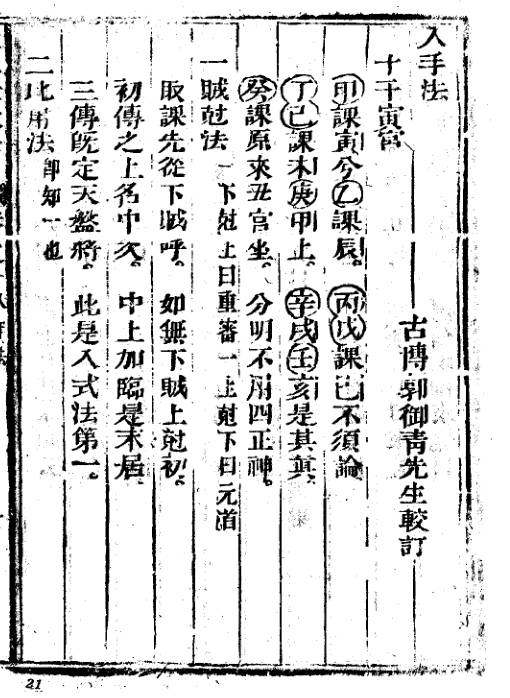 入手法
古博郭御青先生較訂
十干寅宮
甲課寅今乙課辰。丙戊課巳不須論
丁己課未庚申上。辛戌壬亥是其眞。
癸課原來丑宮坐。分明不用四正神。
一賊尅法一下尅上曰重審一上尅下曰元首
取課先從下賊呼。如無下賊上尅初。
初傳之上名中次。中上加臨是末居。
三傳旣定天盤將。此是入式法第一。
二此用法卽知一也
21